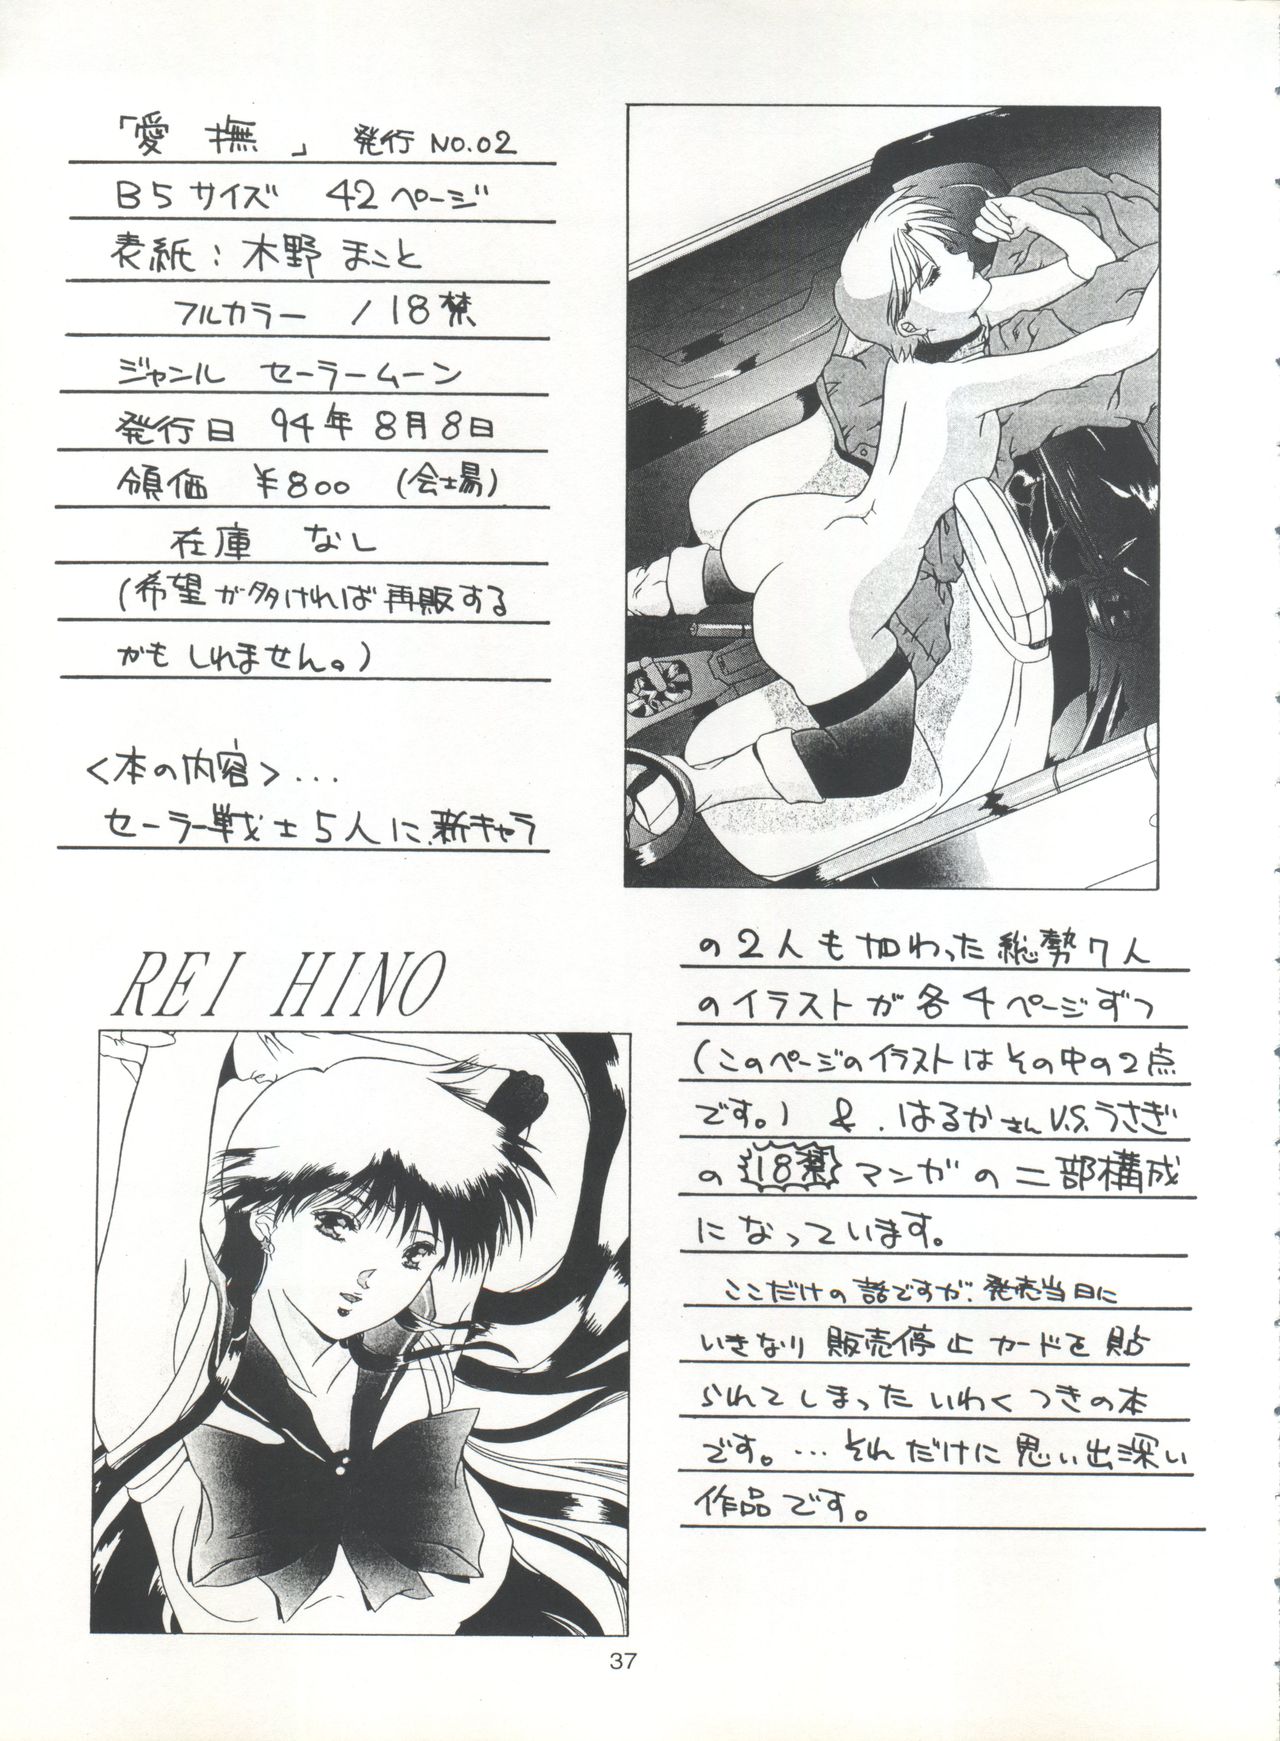 「愛撫」 発行 NO.02
B5サイズ 42ページ
表紙:木野まこと
フルカラー / 18禁
ジャンル セーラームーン
発行日 94年8月8日
領価 ¥800 (会場)
在庫 なし
(希望が多ければ再販する
かもしれません。)
<本の内容>...
セーラー戦士5人に、新キャラ
の2人も加わった総勢7人
のイラストが各4ページずつ
(このページのイラストはその中の2点
です。) &、はるかさんV.S.うさぎ
の 18禁 マンガの二部構成
になっています。
ここだけの話ですが、発売当日に
いきなり販売停止カードを貼
られてしまったいわくつきの本
です。…それだけに思い出深い
作品です。
REI HINO
37